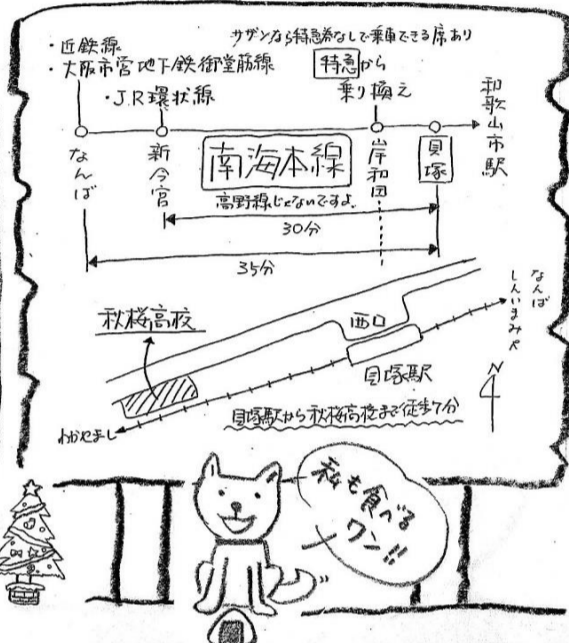 サザンなら特急券なしで乗車できる席あり
・近鉄線
・大阪市営地下鉄御堂筋線
・J.R環状線
特急から
乗り換え
和歌山市駅
なんば
新今宮
南海本線
岸和田
貝塚
高野線じゃないですよ
30分
35分
なんば
しんいまみや
秋桜高校
西口
貝塚駅
N
貝塚駅から秋桜高校まで徒歩7分
わかやまし
私も食べる
ワン!!